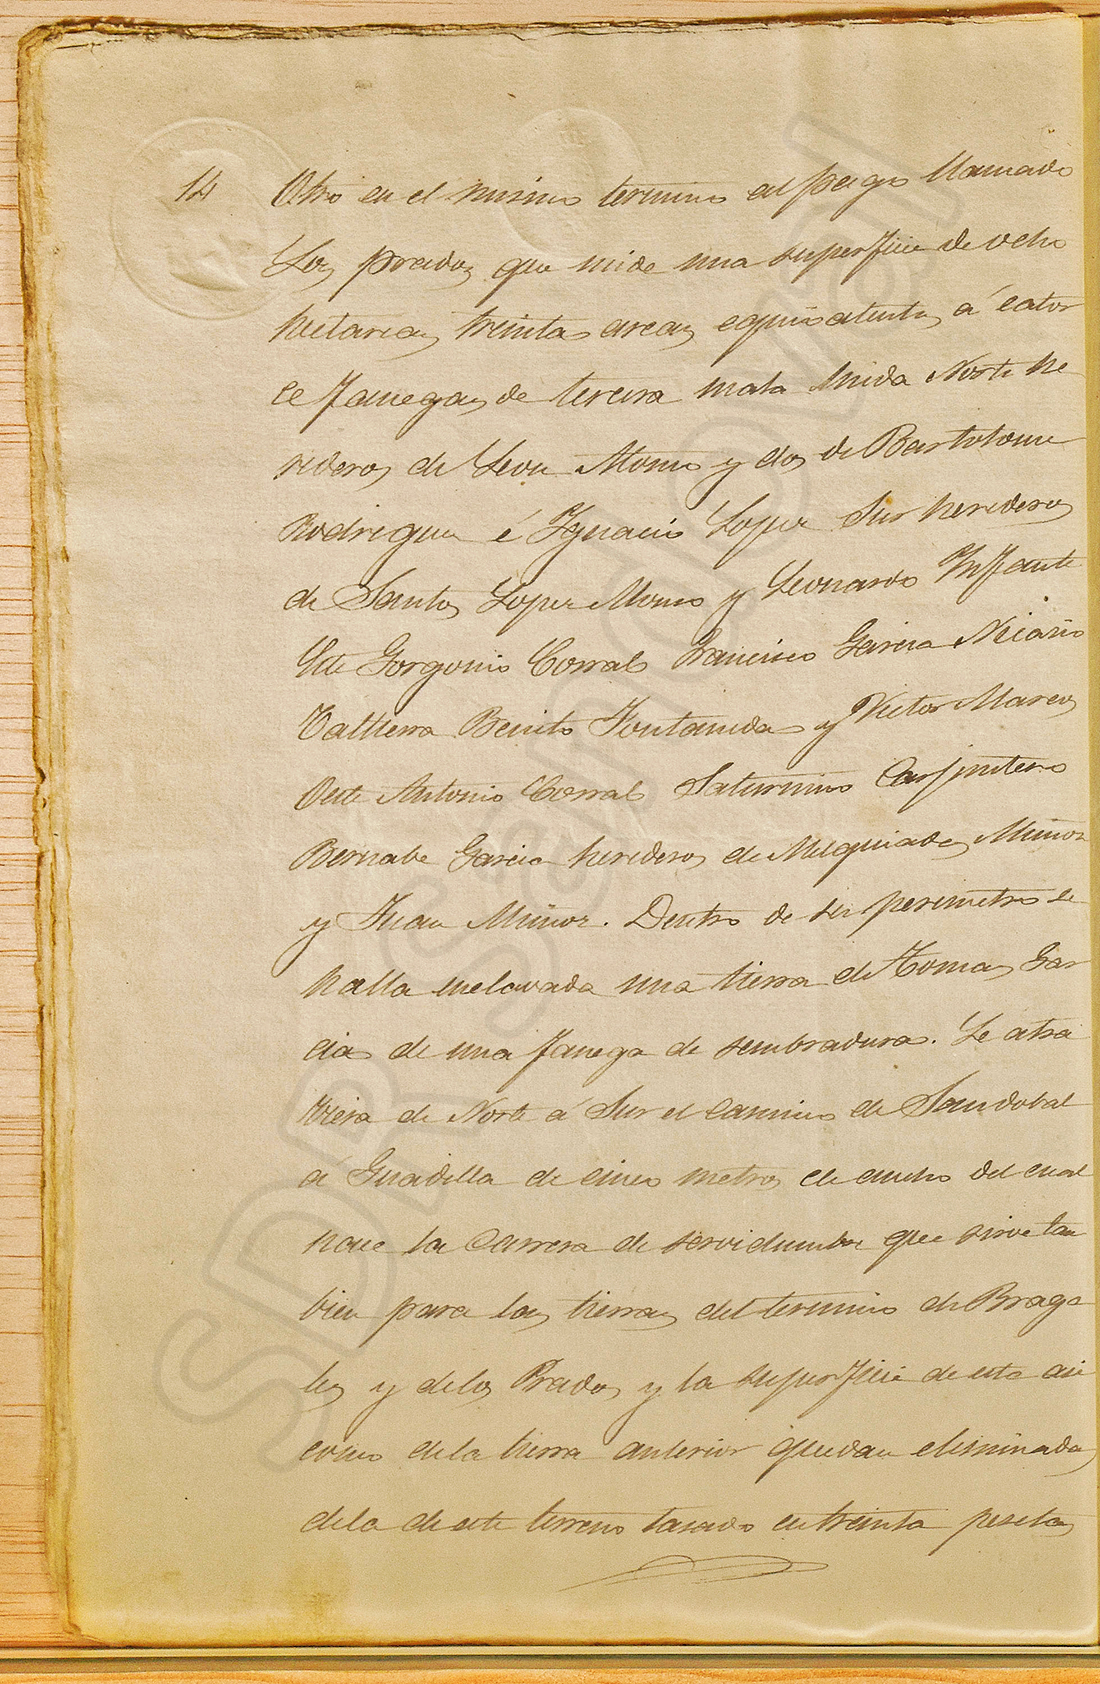 14 Otro en el mismo termino al pago llamado
Los prados que mide una superficie de ocho
hectareas treinta areas equivalentes á cator
ce fanegas de tercera mala linda Norte he
rederos de Leon Monso y dos de Bartolome
Rodriguez é Ignacio Lopez Sur herederos
de Santos Lopez Monso y Leonardo Infante
Este Gorgonio Corral Francisco Garcia
Valtierra Benito Fontaneda y Victor Marcos
Oeste Antonio Corral Saturnino Carpintero
Bernabe Garcia herederos de Melquiades Muñoz
y Juan Muñoz. Dentro de su perimetro se
halla enclavada una tierra de Tomas Gar
cia de una fanega de sembradura. Le atra
viesa de Norte á Sur el camino de Sandobal
á Guadilla de cinco metros de ancho del cual
nace la carrera de servidumbre que sirve tan
bien para las tierras del termino de Braga
les y de los Prados y la superficie de esta asi
como de la tierra anterior quedan eliminadas
de la de este terreno tasado en treinta pesetas
SDP Sandoval